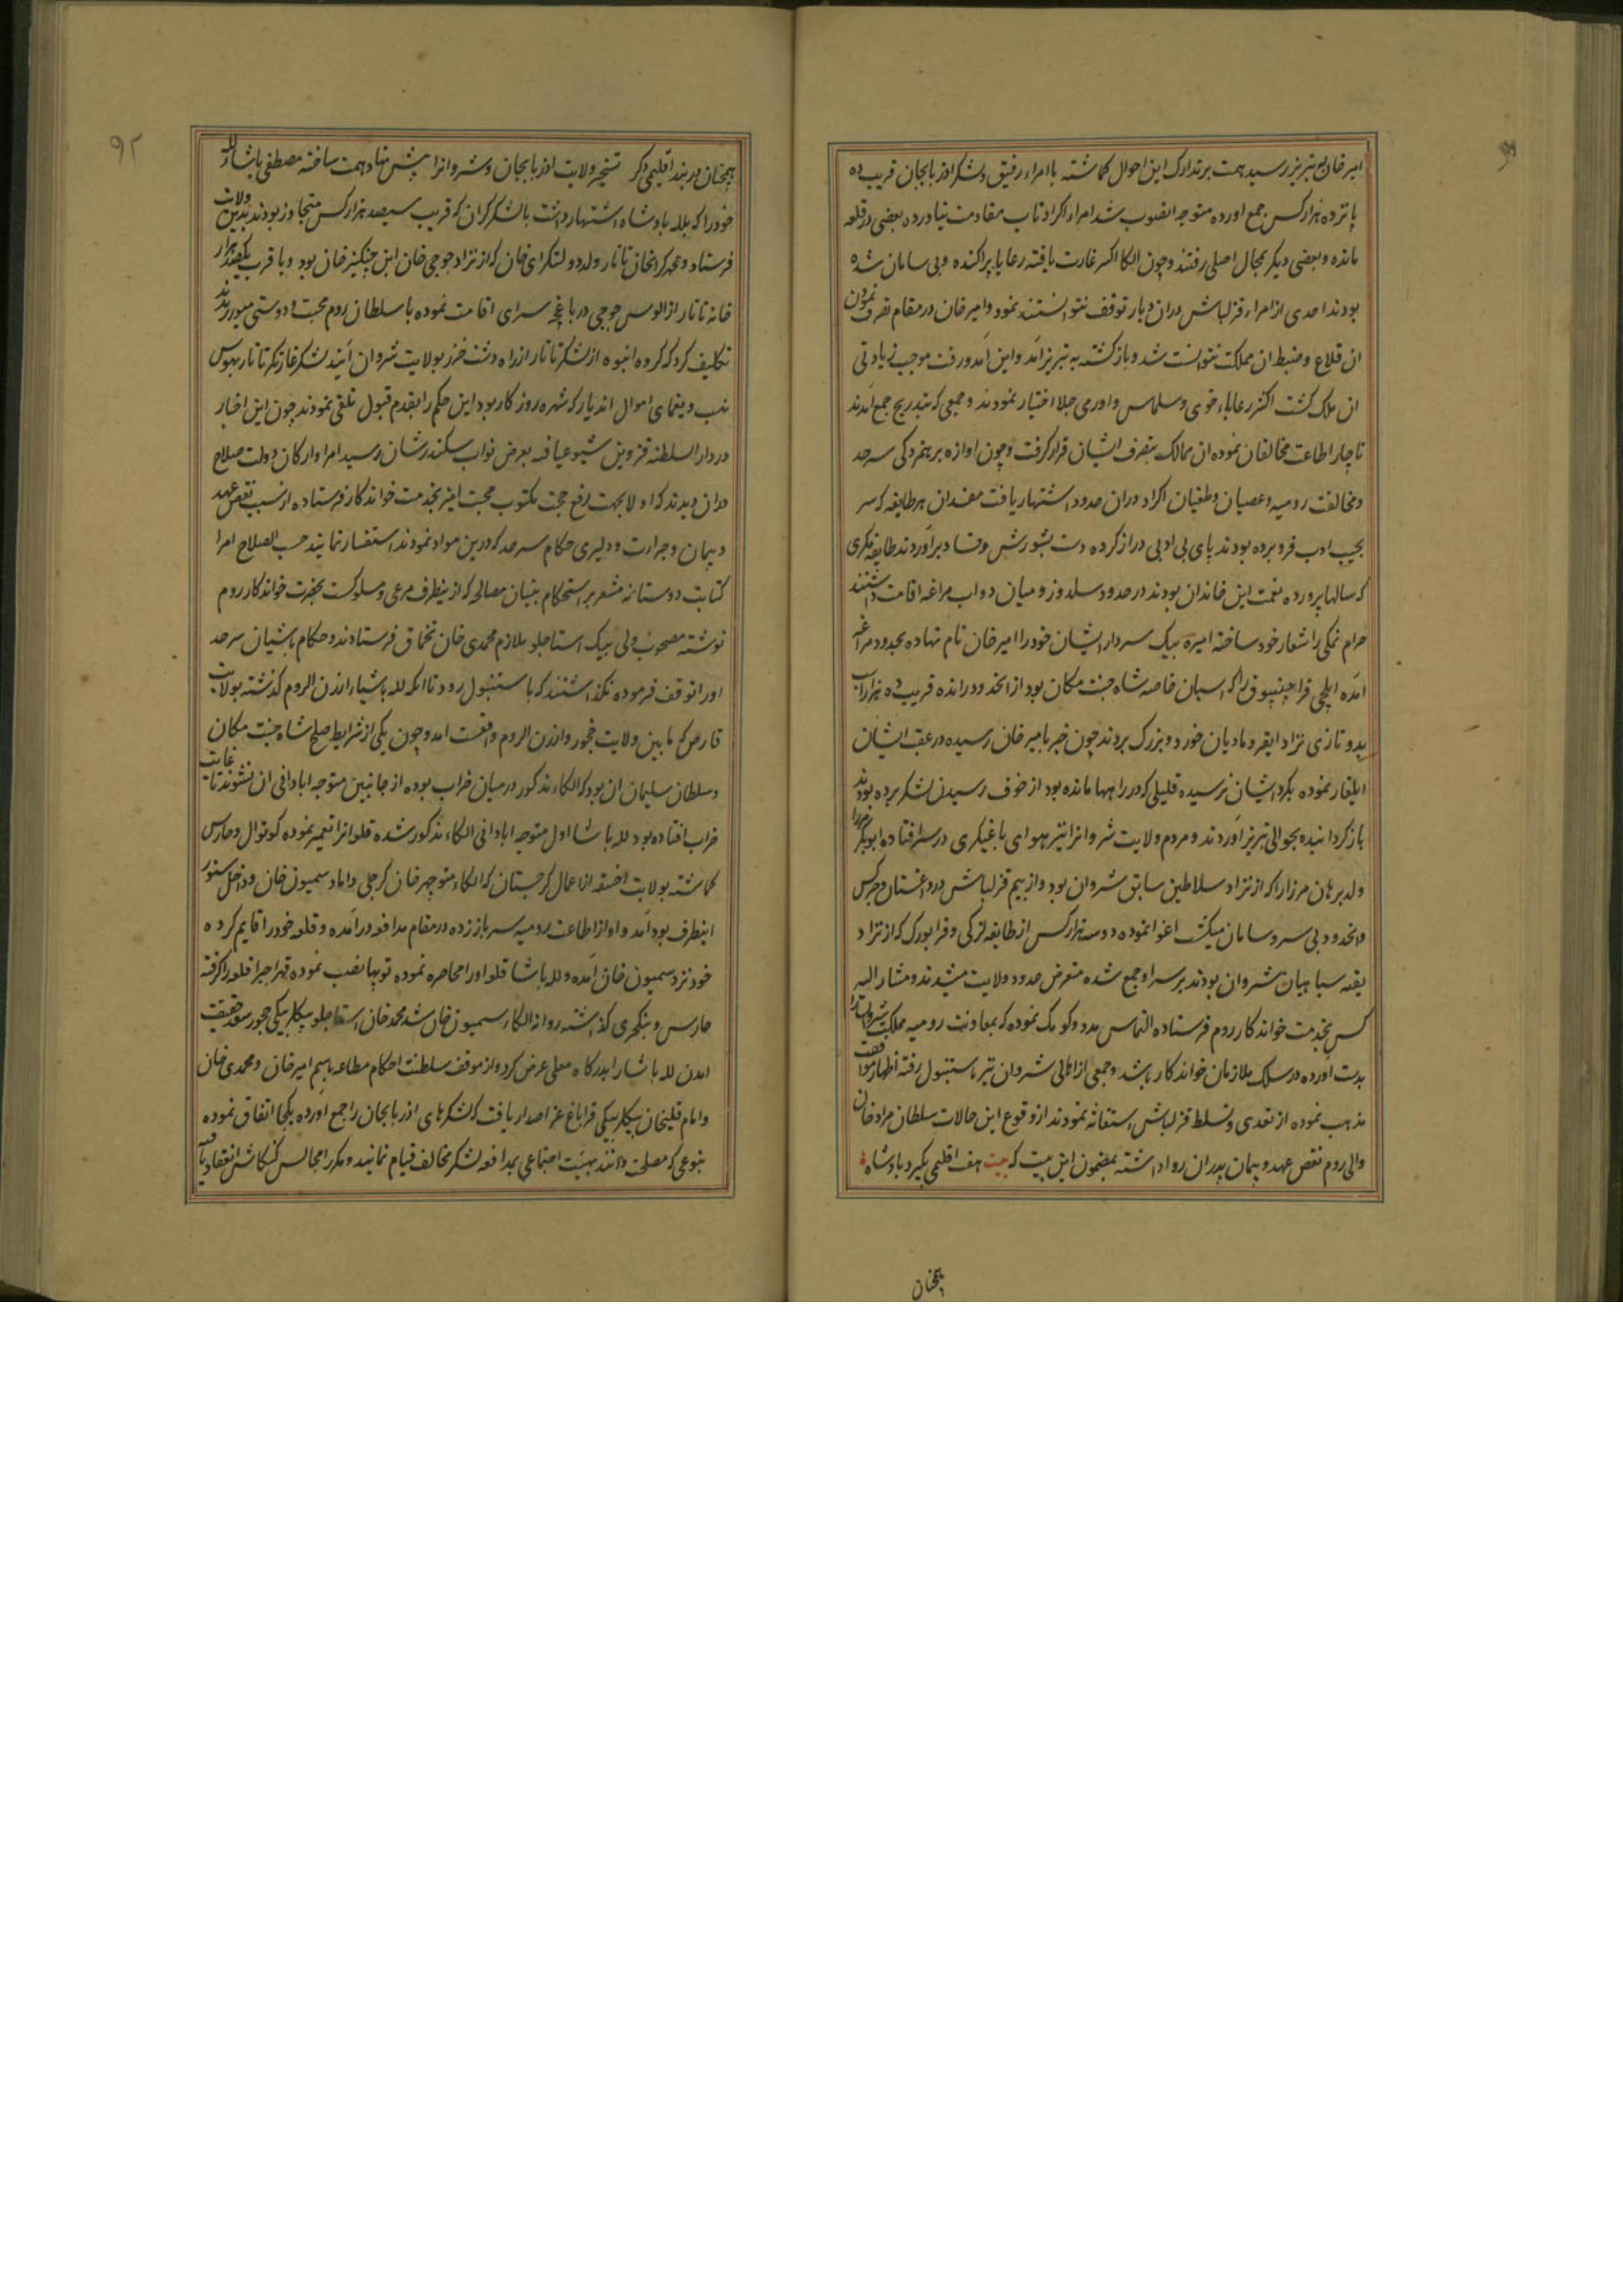 امیر خان به تبریز رسید همت بر تدارک این احوال کماشته با امراء رفیق و لشکر اذربایجان قریب ده
پانزده هزار کس جمع اورده متوجه انصوب شد امراء اکراد تاب مقاومت نیاورده بعضی در قلعه
مانده و بعضی دیکر بمحال اصلی رفتند و چون الکا اکثر غارت یافته رعایا پراکنده و بی سامان شده
بودند احدی از امراء قزلباش دران دیار توقف نتوانستند نمود و امیر خان در مقام تصرف نمودن
ان قلاع و ضبط ان مملکت نتوانست شد و بازکشته به تبریز آمد و این آمد و رفت موجب زیادتی
ان ملک کشت اکثر رعایاء خوی و سلماس و اورمی جلا اختیار نمودند و جمعی که بتدریج جمع آمدند
ناچار اطاعت مخالفان نموده ان ممالک بتصرف ایشان قرار کرفت و چون اوازه برهمزدکی سرحد
و مخالفت رومیه و عصیان و طغیان اکراد دران حدود اشتهار یافت مفسدان هر طایفه که سر
بجیب ادب فرو برده بودند پای بی ادبی دراز کرده دست بشورش و فساد برآوردند طایفه مکری
که سالها پرورده نعمت این خاندان بودند در حدود سلدوز و میان دواب مراغه اقامت داشتند
حرام نمکی را شعار خود ساخته امیره بیک سردار ایشان خود را امیر خان نام نهاده بحدود مراغه
آمده ایلچی قراجیپوق را که اسبان خاصه شاه جنت مکان بود از انحدود رانده قریب ده هزار اسب
بدو تازی نژاد ایقر و مادیان خورد و بزرک بردند چون خبر بامیر خان رسیده در عقب ایشان
ایلغار نموده بکرد ایشان نرسیده قلیلی که در راهها مانده بود از خوف رسیدن لشکر برده بودند
بازکردانیده بحوالی تبریز آوردند و مردم ولایت شروانرا نیز هوای یاغیکری در سر افتاده ابوبکر میرزا
ولد برهان میرزا را که از نژاد سلاطین سابق شروان بود و از بیم قزلباش در داغستان و چرکس
و انحدود بی سر و سامان میکشت اغوا نموده دو سه هزار کس از طایفه لزکی و قرابورک که از نژاد
بقیه سپاهیان شروان بودند بر سر او جمع شده متعرض حدود ولایت میشدند و مشار الیه
کس بخدمت خواندکار روم فرستاده التماس مدد و کومک نموده که بمعاونت رومیه مملکت شروانرا
بدست اورده در سلک ملازمان خواندکار باشد و جمعی از اهالی شروان نیز باستنبول رفته اظهار موافقت
مذهب نموده از تعدی و تسلط قزلباش استغاثه نمودند از وقوع این حالات سلطان مراد خان
والی روم نقض عهد و پیمان پدران روا داشته بمضمون این بیت که بیت هفت اقلیمی بکیرد پادشاه
همچنان
۹۲
همچنان در بند اقلیمی دکر تسخیر ولایت اذربایجان و شروانرا پیش نهاد همت ساخته مصطفی پاشا لله
خود را که بلله پادشاه اشتهار داشت با لشکر کران که قریب سیصد هزار کس متجاوز بودند بدین ولایت
فرستاد و محمد کرایخان تاتار ولد دولتکرای خان که از نژاد جوجی خان ابن چنکیز خان بود و با قرب یکصد هزار
خانه تاتار از الوس جوجی در باغچه سرای اقامت نموده با سلطان روم محبت و دوستی میورزیدند
تکلیف کرد که کروه انبوه از لشکر تاتار از راه دشت خزر بولایت شروان آیند لشکر غارتکر تاتار بهوس
نهب و یغمای اموال اندیار که شهره روزکار بود این حکم را بقدم قبول تلقی نمودند چون این اخبار
در دار السلطنه قزوین شیوع یافته بعرض نواب سکندرشان رسید امرا و ارکان دولت صلاح
دران دیدند که اولا بجهت رفع حجت مکتوب محبت امیز بخدمت خواندکار فرستاده از سبب نقض عهد
و پیمان و جرات و دلیری حکام سرحد که درین مواد نمودند استفسار نمایند حسب الصلاح امرا
کتابت دوستانه مشعر بر استحکام بنیان مصالحه که از ینطرف مرعی و مسلوکست بحضرت خواندکار روم
نوشته مصحوب ولی بیک استاجلو ملازم محمدی خان تخماق فرستادند و حکام پاشیان سرحد
اورا توقف فرموده نکذاشتند که باستنبول رود تا انکه لله پاشا از ارزن الروم کذشته بولایت
قارص که مابین ولایت چخور و ارزن الروم واقعست امد و چون یکی از شرایط صلح شاه جنت مکان
و سلطان سلیمان ان بود که الکاء مذکور در میان خراب بوده از جانبین متوجه ابادانی ان نشوند تا غایت
خراب افتاده بود لله پاشا اول متوجه ابادانی الکاء مذکور شده قلعه انرا تعمیر نموده کوتوال و حارس
کماشته بولایت اخسقه از اعمال کرجستان که الکاء منوچهر خان کرجی داماد سمیون خان و داخل سنور
اینطرف بود آمد و او از اطاعت رومیه سر باز زده در مقام مدافعه درآمده و قلعه خود را قایم کرده
خود نزد سمیون خان آمده و لله پاشا قلعه اورا محاصره نموده توپها نصب نموده قهرا جبرا قلعه را کرفته
حارس و ینکچری کذاشته روانه الکاء سمیون خان شد محمد خان استاجلو بیکلربیکی چخور سعد حقیقت
امدن لله پاشا را بدرکاه معلی عرض کرد و از موقف سلطنت احکام مطاعه باسم امیر خان و محمدی خان
و امام قلیخان بیکلربیکی قراباغ عز اصدار یافت که لشکرهای اذربایجان را جمع آورده بیکجا اتفاق نموده
بنوعی که مصلحت دانند بهیئت اجتماعی بمدافعه لشکر مخالف قیام نمایند و مکررا مجالس کنکاش انعقاد یافته